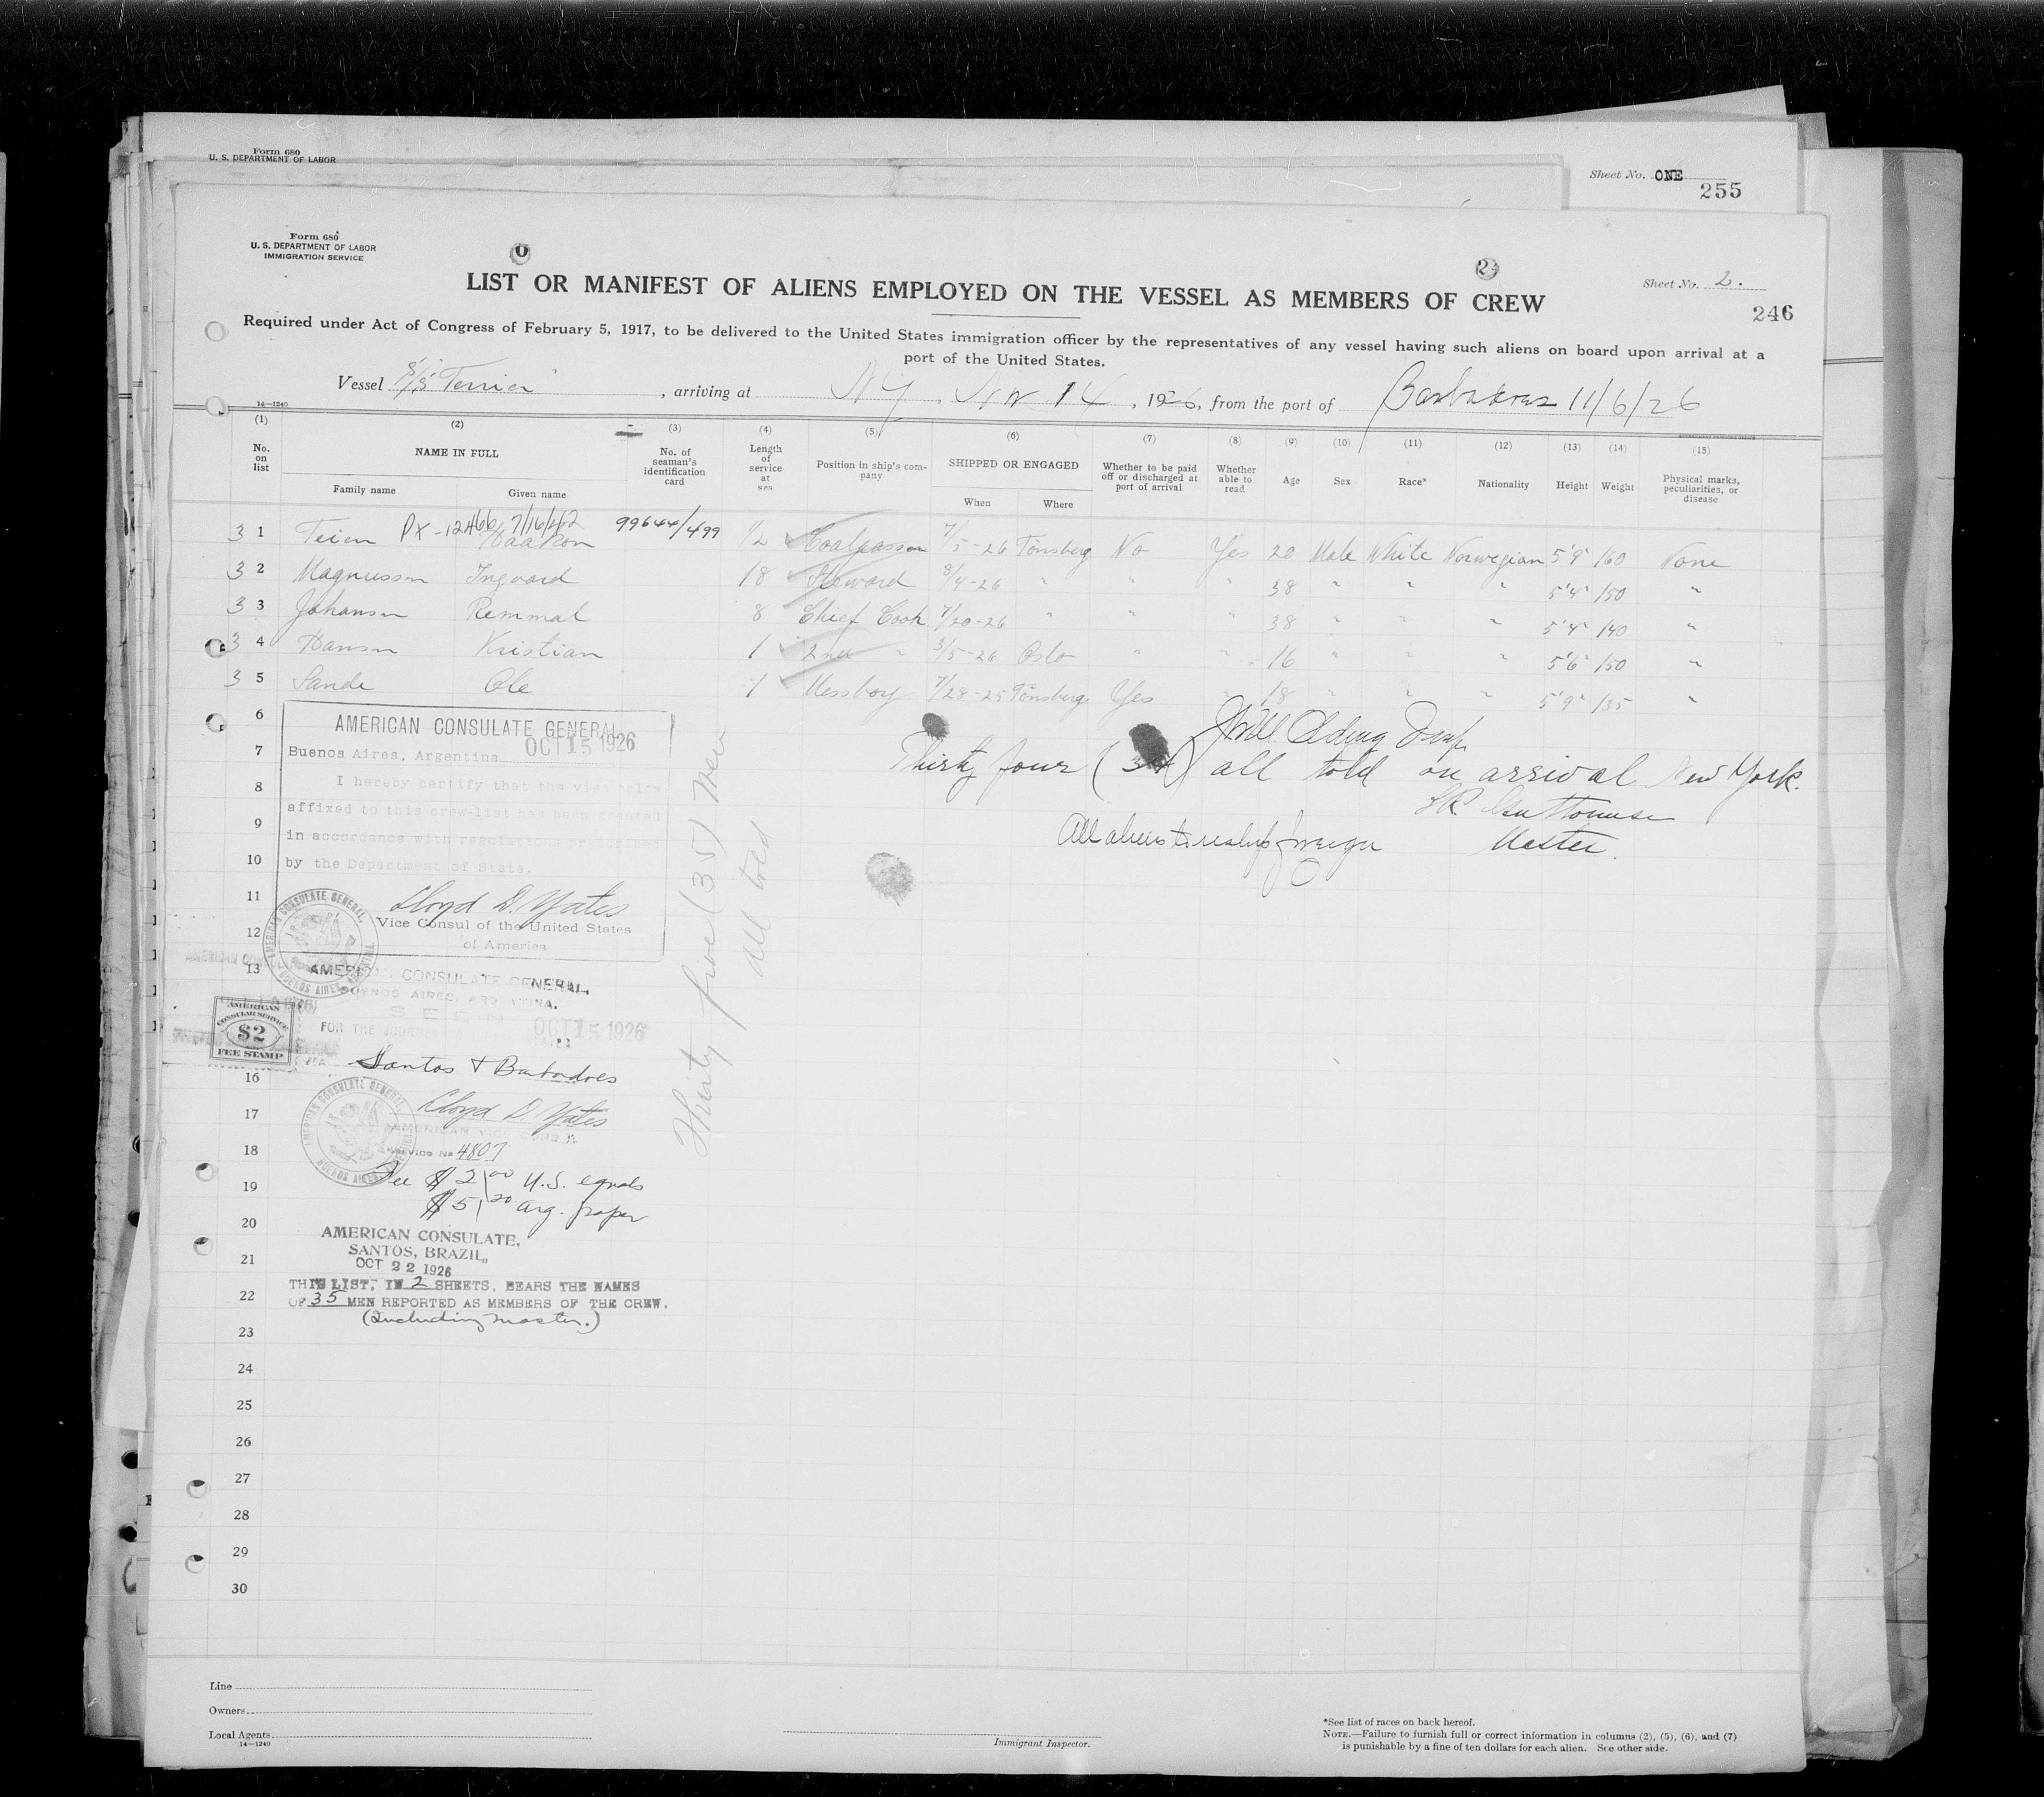 Form 680
U. S. DEPARTMENT OF LABOR
Sheet No. ONE
255
Form 680
U. S. DEPARTMENT OF LABOR
IMMIGRATION SERVICE
Sheet No. 2.
246
LIST OR MANIFEST OF ALIENS EMPLOYED ON THE VESSEL AS MEMBERS OF CREW
Required under Act of Congress of February 5, 1917, to be delivered to the United States immigration officer by the representatives of any vessel having such aliens on board upon arrival at a
port of the United States.
Vessel S/S "Terrier", arriving at NY, Nov 14, 1926, from the port of Barbados 11/6/26
14—1240
(1) (2) (3) (4) (5) (6) (7) (8) (9) (10) (11) (12) (13) (14) (15)
No. on list
NAME IN FULL
Family name Given name
No. of seaman's identification card
Length of service at sea
Position in ship's company
SHIPPED OR ENGAGED
When Where
Whether to be paid off or discharged at port of arrival
Whether able to read
Age Sex Race* Nationality Height Weight
Physical marks, peculiarities, or disease
PX-12466 7/16/42 99644/499
3 1 Teien Haakon 1/2 Coalpasser 7/5-26 Tönsberg No Yes 20 Male White Norwegian 5'9" 160 None
3 2 Magnussen Ingvard 18 Steward 8/4-26 " " " 38 " " " 5'4" 150 "
3 3 Johansen Remmal 8 Chief Cook 7/20-26 " " " 38 " " " 5'4" 140 "
3 4 Hansen Kristian 1 2nd " 3/5-26 Oslo " " 16 " " " 5'6" 150 "
3 5 Sande Ole 1 Messboy 7/28-25 Tönsberg Yes 18 " " " 5'9" 135 "
6
7
8
9
10
11
12
13
16
17
18
19
20
21
22
23
24
25
26
27
28
29
30
AMERICAN CONSULATE GENERAL
Buenos Aires, Argentina OCT 15 1926
I hereby certify that the visa below
affixed to this crew-list has been granted
in accordance with regulations prescribed
by the Department of State.
Lloyd D. Yates
Vice Consul of the United States
of America
Thirty five (35) men
all told
Thirty four (34) all told on arrival New York.
Master.
All aliens to reship foreign
AMERICAN CONSULATE GENERAL,
BUENOS AIRES, ARGENTINA
AMERICAN CONSULATE GENERAL,
BUENOS AIRES, ARGENTINA.
SEEN
FOR THE JOURNEY OCT 15 1926
AMERICAN
CONSULAR SERVICE
$2
FEE STAMP
Santos & Barbadoes
Lloyd D. Yates
AMERICAN VICE CONSUL
Service No 4807
AMERICAN CONSULATE GENERAL
BUENOS AIRES
Fee $ 2.00 U.S. equals
$ 5.20 arg. paper
AMERICAN CONSULATE,
SANTOS, BRAZIL,
OCT 22 1926
THIS LIST, IN 2 SHEETS, BEARS THE NAMES
OF 35 MEN REPORTED AS MEMBERS OF THE CREW.
(Including master.)
Line
Owners
Local Agents
14—1240
Immigrant Inspector.
*See list of races on back hereof.
NOTE.—Failure to furnish full or correct information in columns (2), (5), (6), and (7)
is punishable by a fine of ten dollars for each alien. See other side.